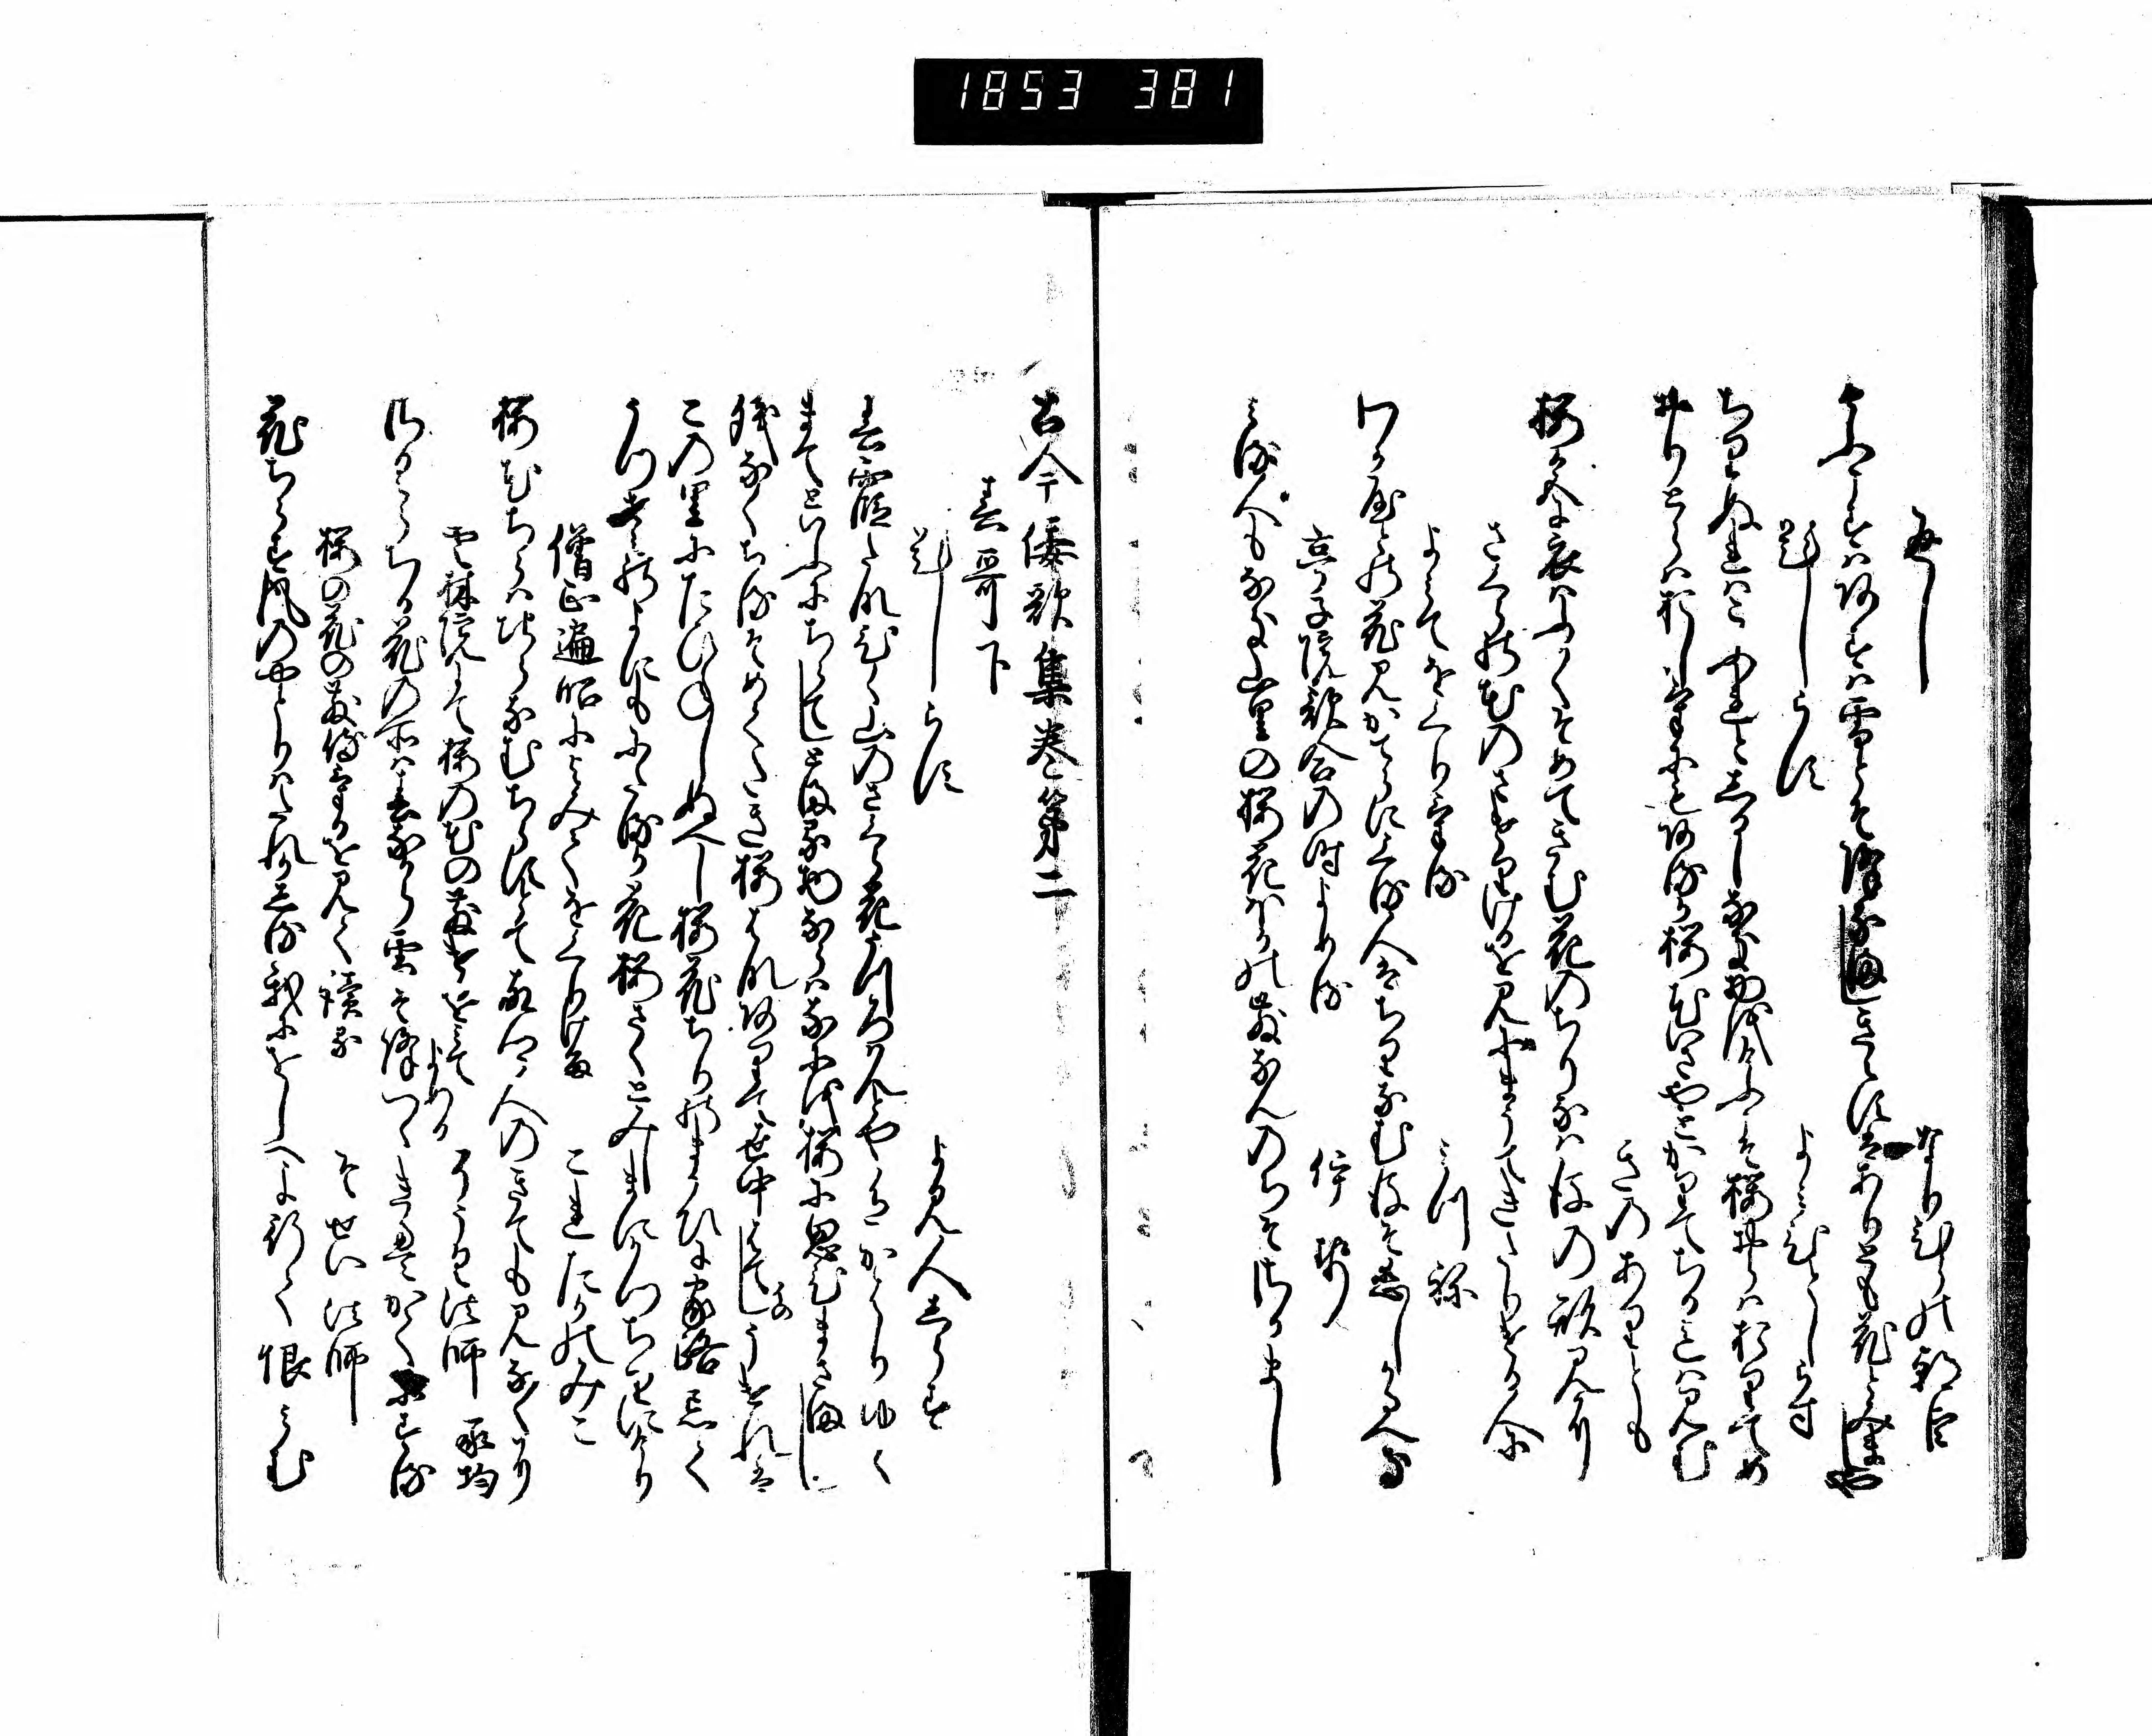 1853 381
返し
なりひらの朝臣
けふこすはあすは雪とそ降なましきえすはありとも花とみましや
題しらす
よみひとしらす
ちりぬれはこふれとしるしなき物をけふこそ桜おらはおりてめ
おりとらはおしけにもあるか桜花いさやとかりてちるまては見む
きのありとも
桜色に衣はふかくそめてきむ花のちりなん後の形見に
さくらの花のさけりけるを見にまうてきたりける人に
よみてをくりける
みつね
わか宿の花見かてらにくる人はちりなむ後そ恋しかるへき
亭子院歌合の時よめる
伊勢
みる人もなき山里の桜花ほかの散なんのちそさかまし
古今倭歌集巻第二
春哥下
題しらす
よみ人しらす
春霞たな引く山のさくら花うつろはんとや色かはりゆく
まてといふにちらてしとまる物ならはなにを桜に思ひまさまし
残なくちるそめてたき桜花ありて世中はてのうけれは
この里にたひねしぬへし桜花ちりのまかひに家路忘て
うつせみのよにもにたるか花桜さくとみしまにかつちりにけり
僧正遍昭によみてをくりける
これたかのみこ
桜花ちらはちらなむちらすとて古里人のきても見なくに
雲林院にて桜の花の散けるをみてよめる
そうく法師 承均
桜ちる花の所は春なから雪そ降つゝきえかてにする
桜の花の散侍けるを見て読る
そせい法師
花ちらす風のやとりはたれかしる我にをしへよ行て恨みむ